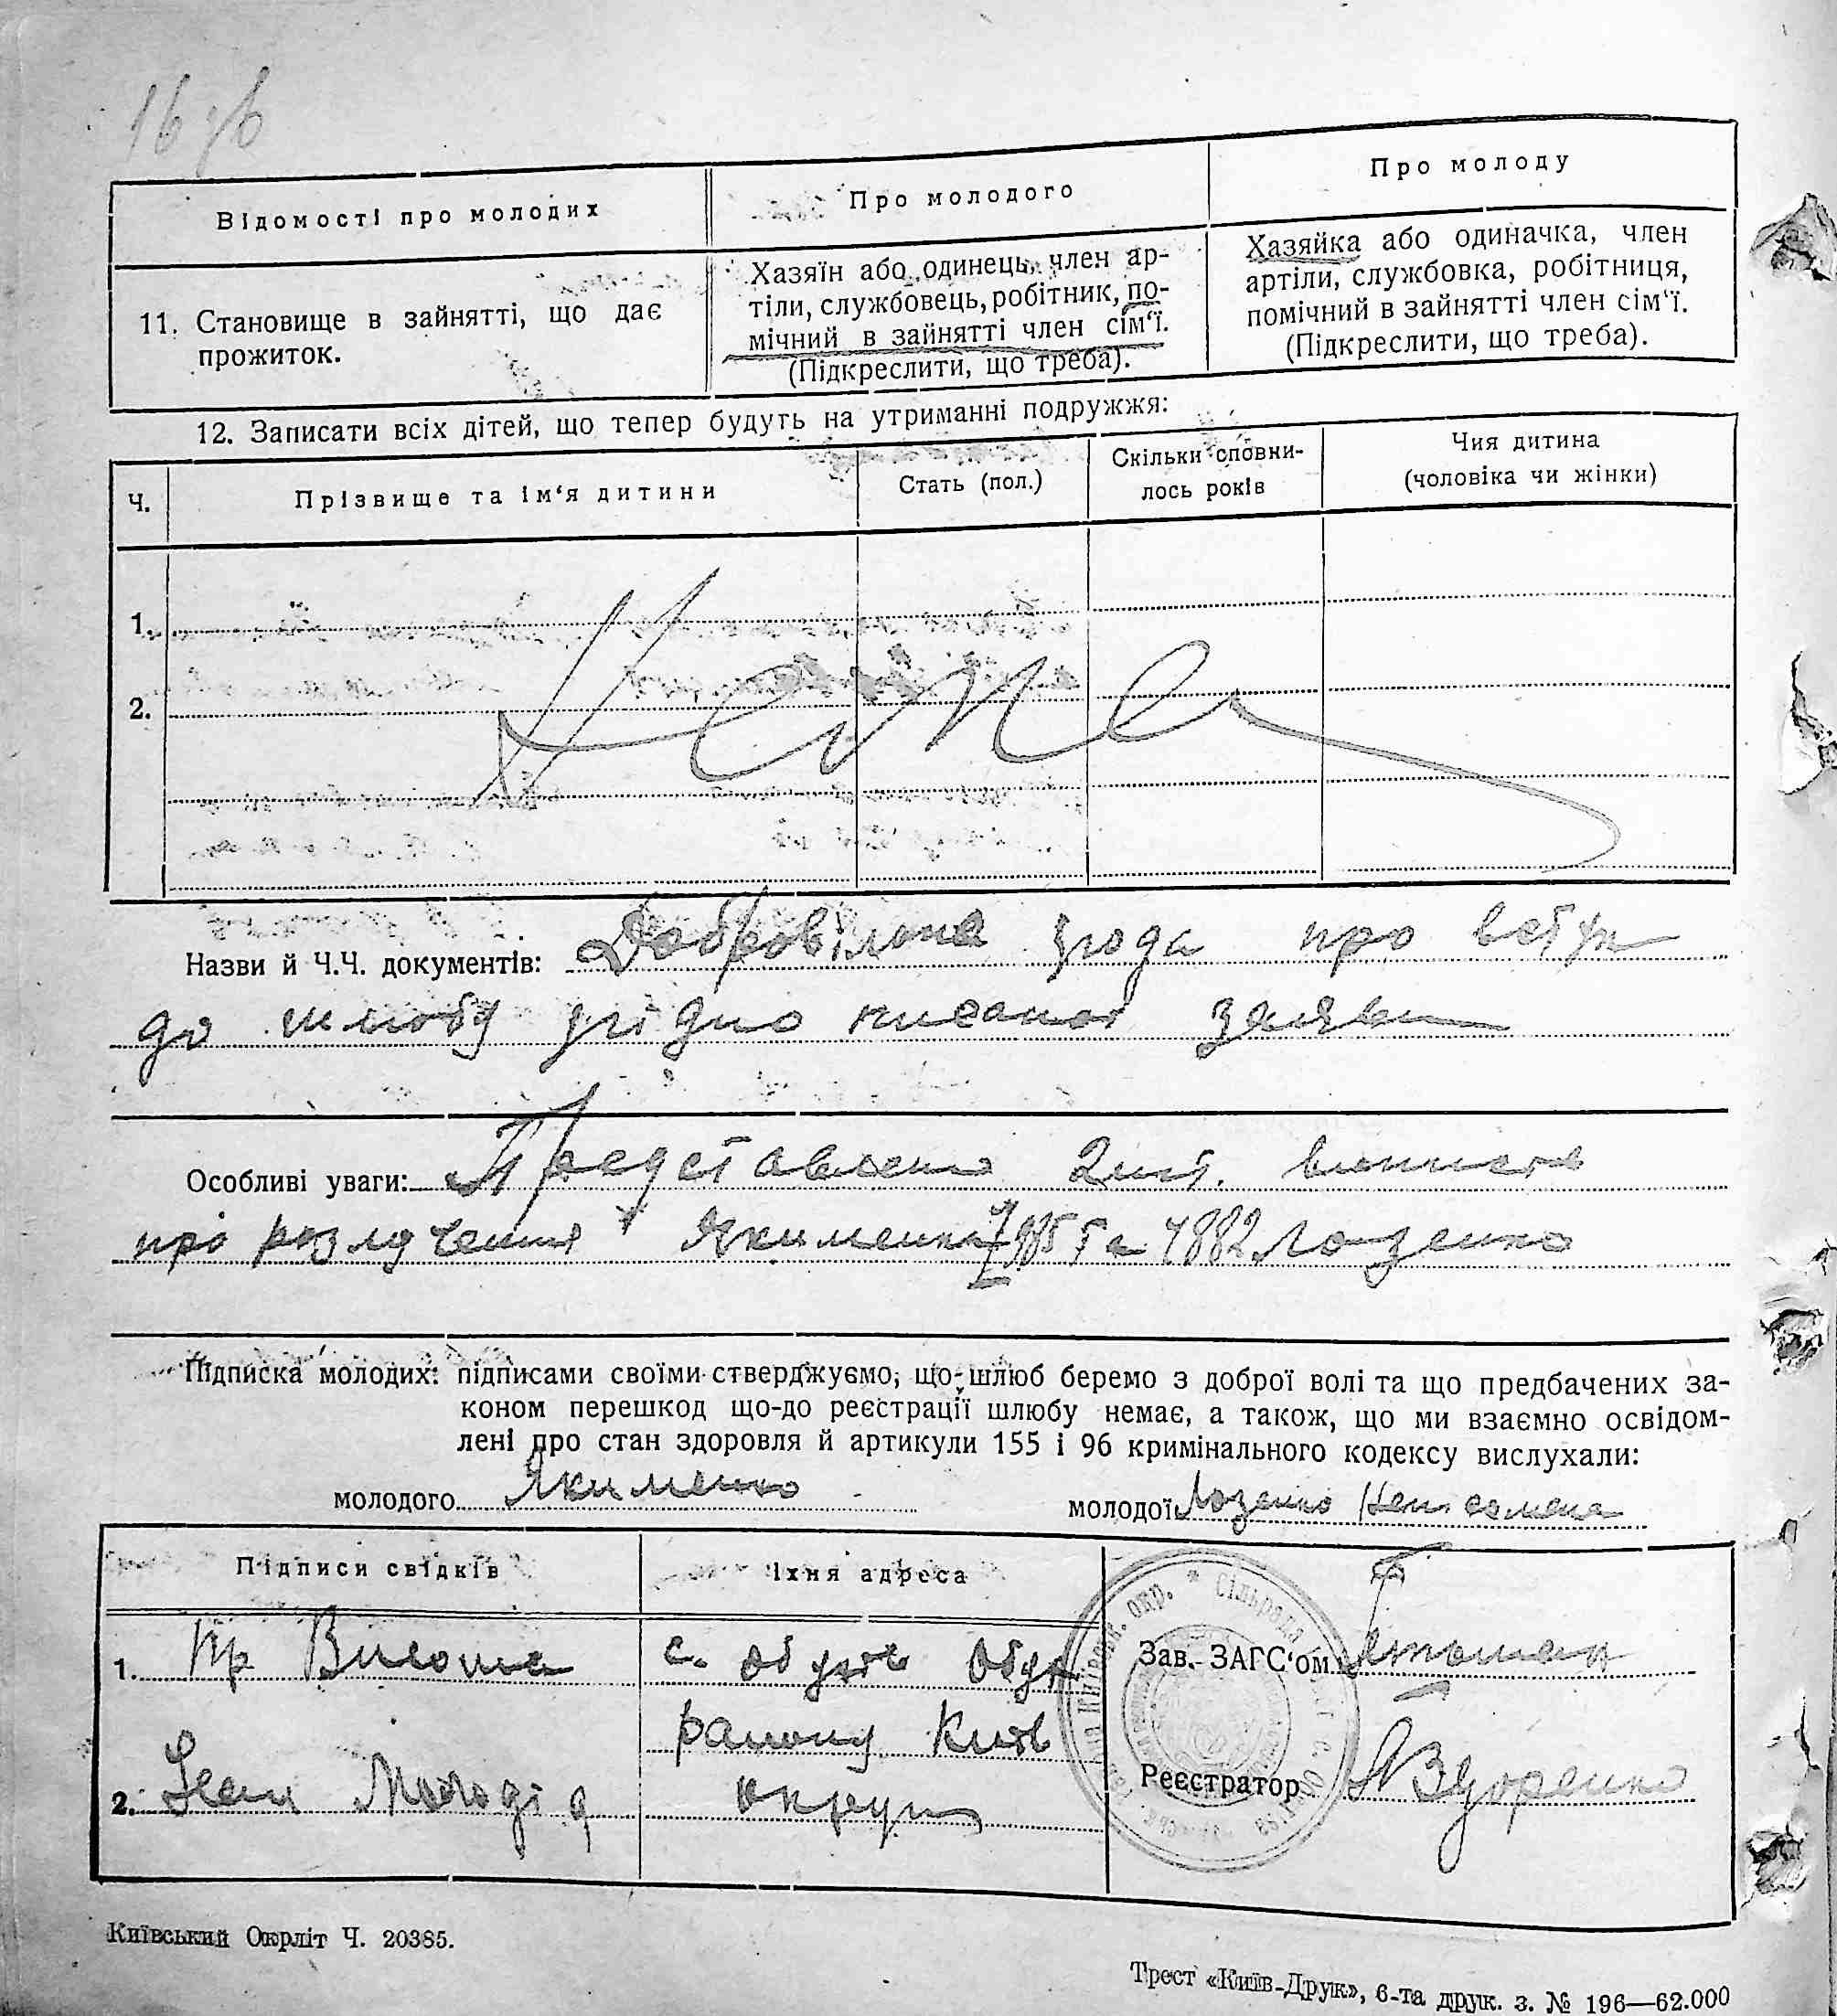 16 зв
Відомості про молодих
Про молодого
Про молоду
11. Становище в зайнятті, що дає
прожиток.
Хазяїн або одинець, член ар-
тіли, службовець, робітник, по-
мічний в зайнятті член сім'ї.
(Підкреслити, що треба).
Хазяйка або одиначка, член
артіли, службовка, робітниця,
помічний в зайнятті член сім'ї.
(Підкреслити, що треба).
12. Записати всіх дітей, що тепер будуть на утриманні подружжя:
Ч.
Прізвище та ім'я дитини
Стать (пол.)
Скільки сповни-
лось років
Чия дитина
(чоловіка чи жінки)
1.
2.
Назви й Ч.Ч. документів: Добровільна угода про вступ
до шлюбу згідно писаної заяви
Особливі уваги: Представлено 2 шт. виписів
про розлучення Якименка та 4882 Лозенко
Підписка молодих: підписами своїми стверджуємо, що шлюб беремо з доброї волі та що предбачених за-
коном перешкод що-до реєстрації шлюбу немає, а також, що ми взаємно освідом-
лені про стан здоровля й артикули 155 і 96 кримінального кодексу вислухали:
молодого Якименко
молодої Лозенко Неписьмена
Підписи свідків
Їхня адреса
1. Висоцка
с. Обухів Обух
району Київ
округи
2. Іван
Зав. ЗАГС'ом
Реєстратор
Київський Окрліт Ч. 20385.
Трест «Київ-Друк», 6-та друк. з. № 196—62.000